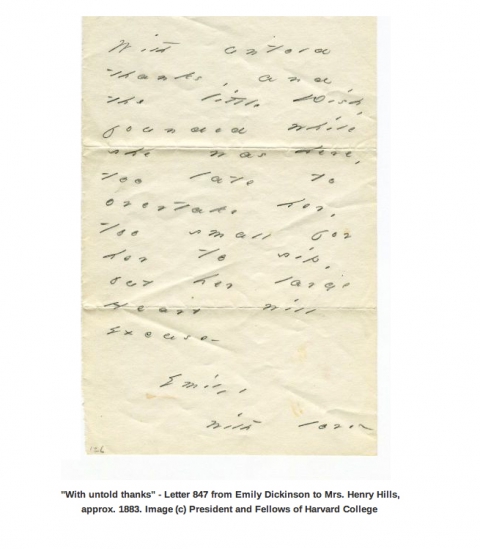 With untold
thanks, and
the little Dish,
founded while
she was here,
too late to
overtake her,
too small for
her to sip,
but her large
Heart will
Excuse-
Emily,
with love
"With untold thanks" - Letter 847 from Emily Dickinson to Mrs. Henry Hills,
approx. 1883. Image (c) President and Fellows of Harvard College